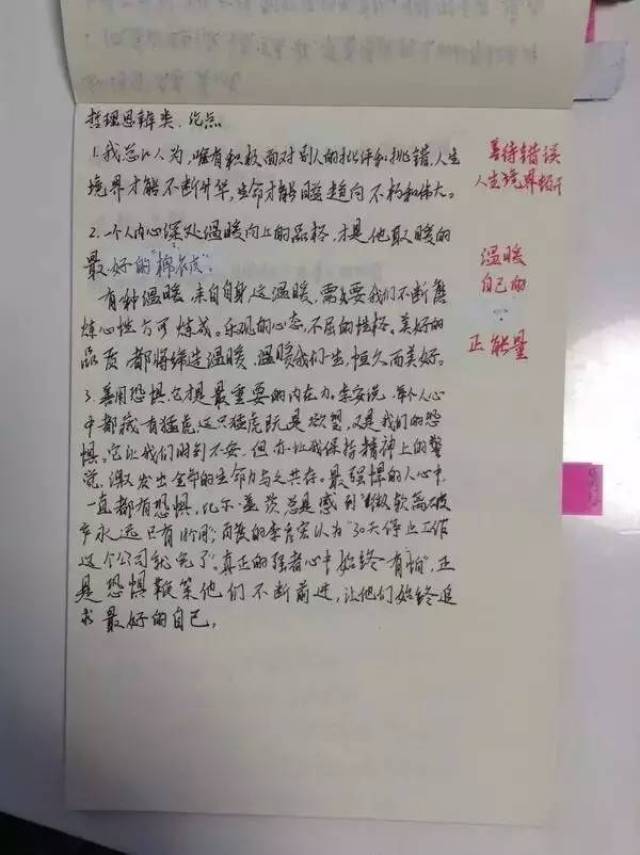 哲理思辨类.论点
1.我总以为,唯有积极面对别人的批评和挑错,人生
境界才能不断升华,生命才能日益趋向不朽和伟大。
善待错误
人生境界拓开
2.一个人内心深处温暖向上的品格,才是他取暖的
最好的"棉衣"。
有种温暖,来自自身,这温暖,需要我们不断磨
炼心性方可炼成。乐观的心态,不屈的性格。美好的
品质都将缔造温暖,温暖我们一生,恒久而美好。
温暖
自己的
正能量
3.善用恐惧,它才是最重要的内在力。李安说,每个人心
中都藏有猛虎,这只猛虎既是欲望,又是我们的恐
惧。它让我们时刻不安,但亦让我保持精神上的警
觉,激发出全部的生命力与之共存。最强悍的人心中,
一直都有恐惧,比尔·盖茨总是感到"微软离破
产永远只有18个月";百度的李彦宏认为"30天停止工作
这个公司就完了"。真正的强者心中始终有"怕",正
是恐惧鞭策他们不断前进,让他们始终追
求最好的自己。